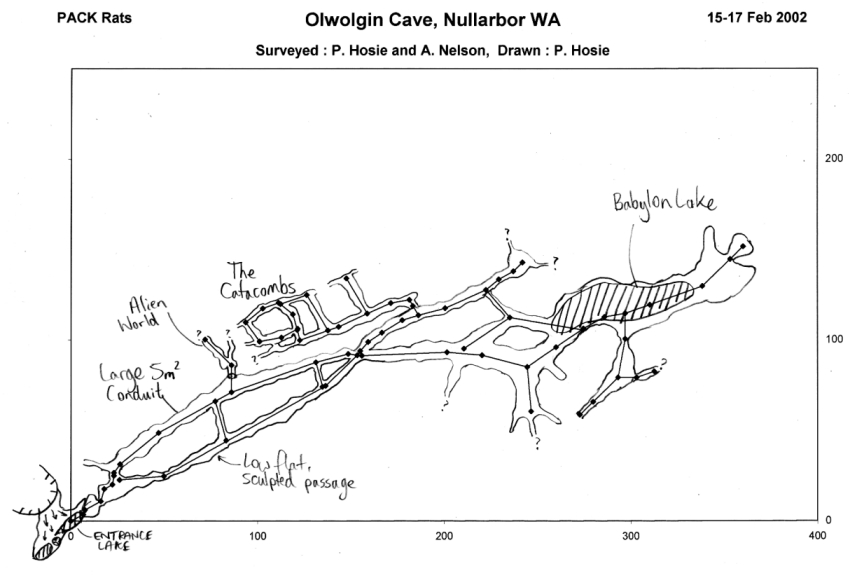 PACK Rats
Olwolgin Cave, Nullarbor WA
15-17 Feb 2002
Surveyed : P. Hosie and A. Nelson, Drawn : P. Hosie
200
Babylon Lake
?
?
The
Catacombs
Alien
World
?
?
?
100
Large 5m²
Conduit
?
?
?
Low flat,
sculpted passage
0
ENTRANCE
LAKE
0
100
200
300
400